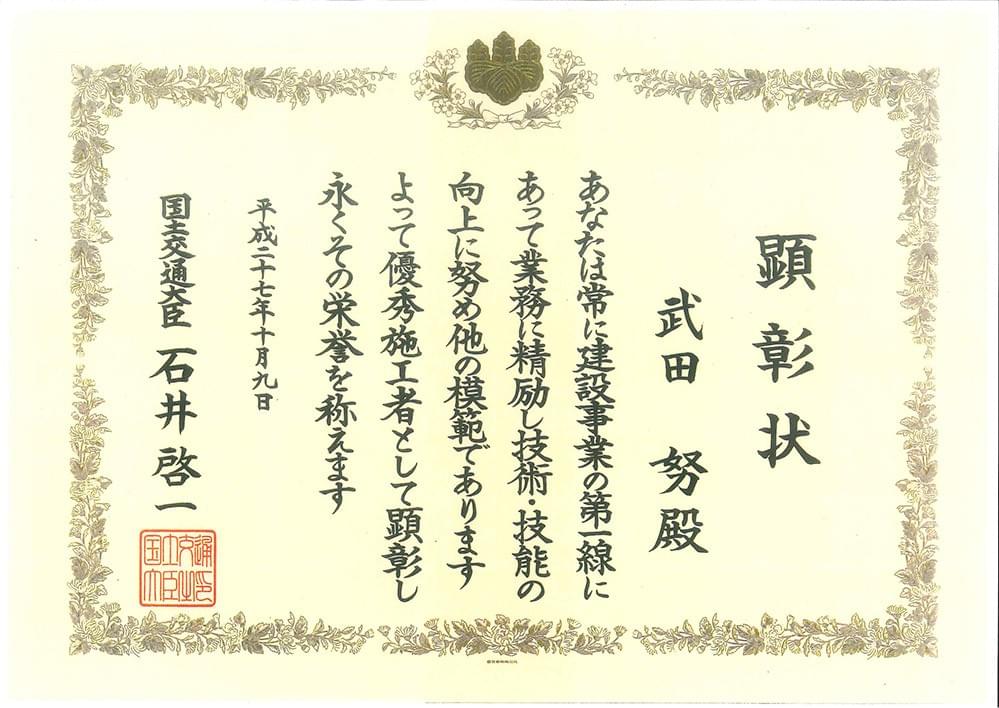 顕彰状
武田 努殿
あなたは常に建設事業の第一線に
あって業務に精励し技術・技能の
向上に努め他の模範であります
よって優秀施工者として顕彰し
永くその栄誉を称えます
平成二十七年十月九日
国土交通大臣 石井啓一
国土交通大臣之印